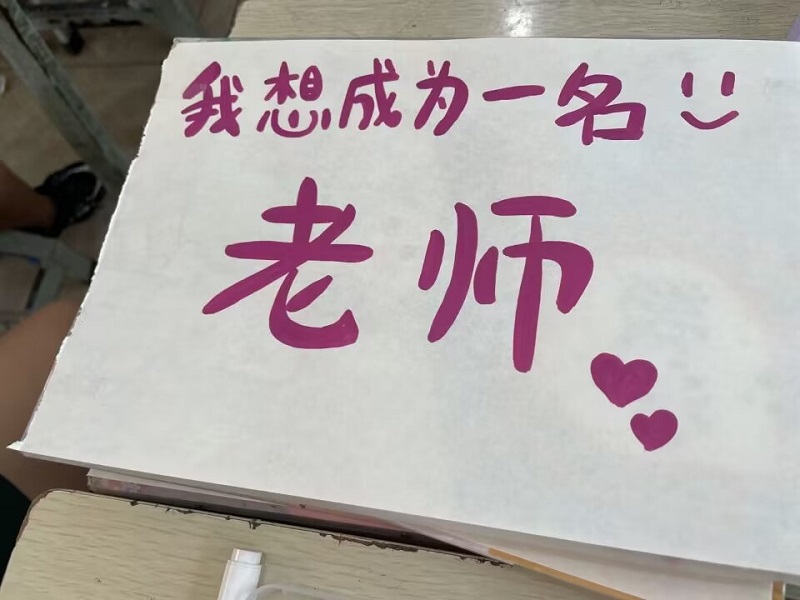 我想成为一名
老师